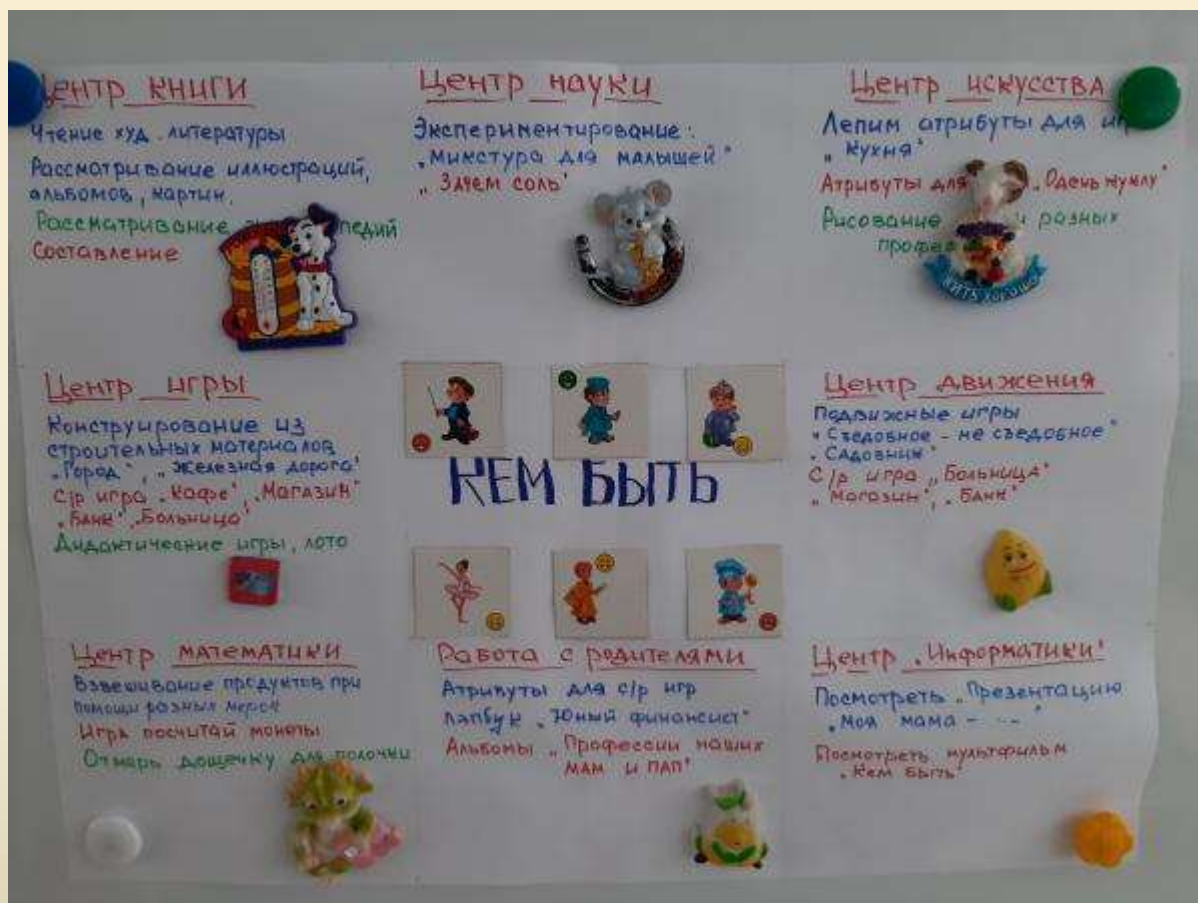 Центр книги
Чтение худ. литературы
Рассмотривание иллюстраций,
альбомов, картин.
Рассматривание педий
Составление
Центр науки
Экспериментирование:
„Микстура для малышей"
„Зачем соль"
Центр искусства
Лепим атрибуты для
„Кухня"
Атрибуты для „Одень куклу"
Рисование разных
Центр игры
Конструирование из
строительных материалов
„Город", „Железная дорога"
С/р игра „Кафе", „Магазин"
„Банк", „Больница"
Дидактические игры, лото
КЕМ БЫТЬ
Центр движения
Подвижные игры
„Съедобное - не съедобное"
„Садовник"
С/р игра „Больница"
„Магазин", „Банк"
Центр математики
Взвешивание продуктов при
помощи разных
Игра посчитай монеты
Отмерь дощечку для полочки
Работа с родителями
Атрибуты для с/р игр
Лэпбук „Юный финансист"
Альбомы „Профессии наших
мам и пап"
Центр „Информатики"
Посмотреть „Презентацию
„Моя мама - ..."
Посмотреть мультфильм
„Кем быть"
ЖИТЬ ХОРОШО